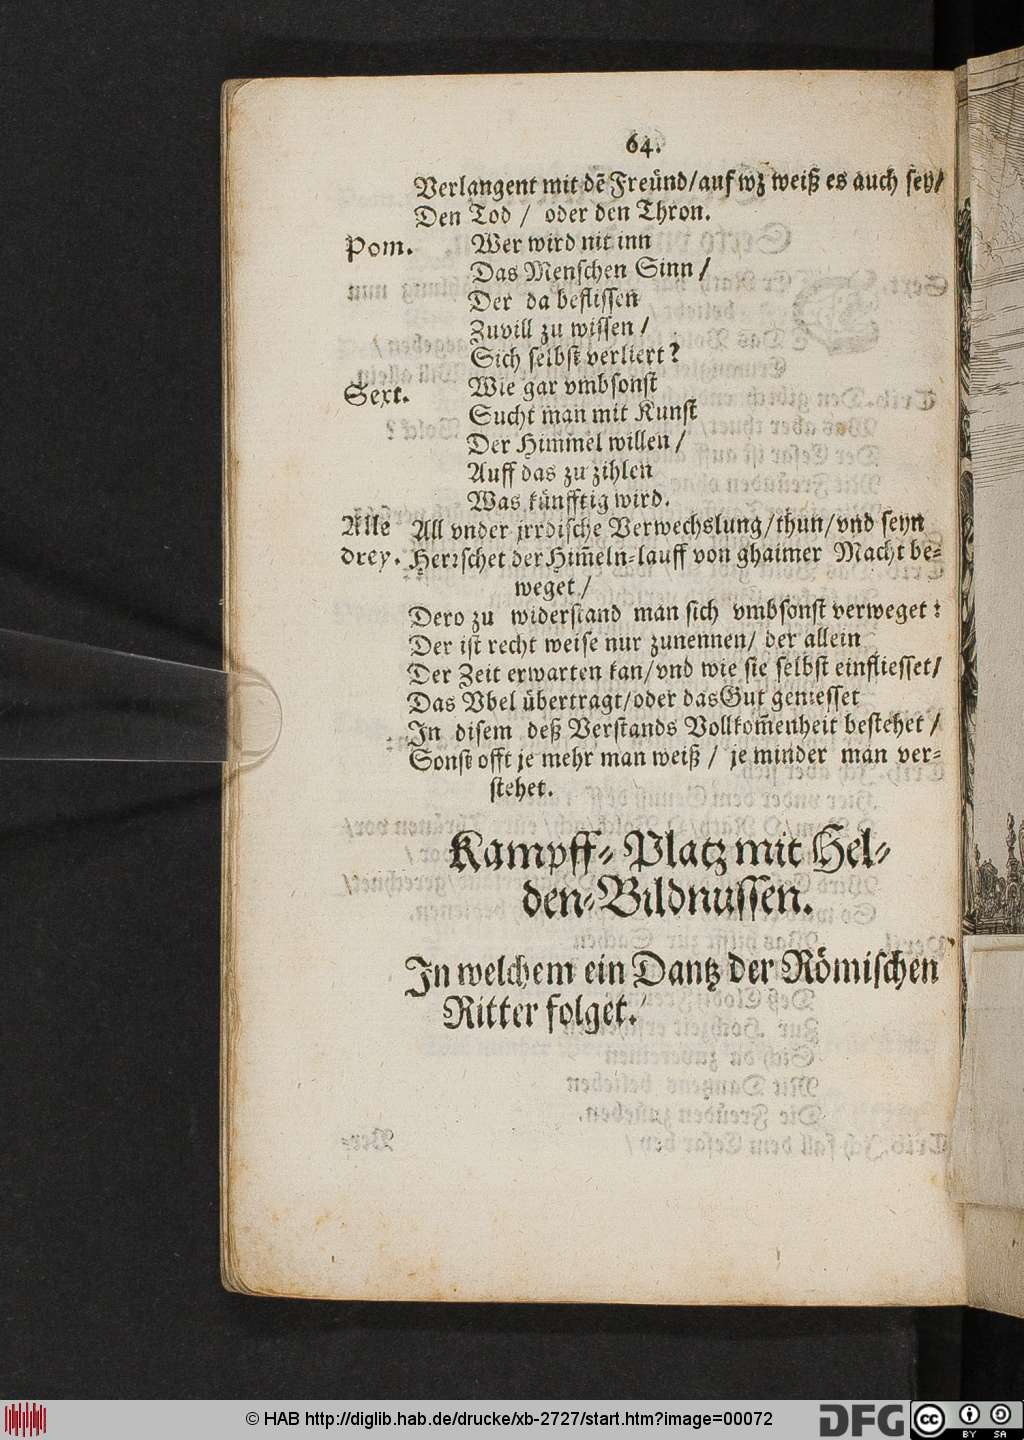 64.
Verlangent mit dẽ Freünd/auf wz weiß es auch sey/
Den Tod / oder den Thron.
Pom. Wer wird nit inn
Das Menschen Sinn /
Der da beflissen
Zuvill zu wissen /
Sich selbst verliert?
Sext. Wie gar vmbsonst
Sucht man mit Kunst
Der Himmel willen /
Auff das zu zihlen
Was künfftig wird.
Alle All vnder jrrdische Verwechslung/thun/vnd seyn
drey. Herrschet der Him̃eln-lauff von ghaimer Macht be-
weget /
Dero zu widerstand man sich vmbsonst verweget:
Der ist recht weise nur zunennen/ der allein
Der Zeit erwarten kan/vnd wie sie selbst einfliesset/
Das Vbel übertragt/oder das Gut geniesset
In disem deß Verstands Vollkom̃enheit bestehet /
Sonst offt je mehr man weiß / je minder man ver-
stehet.
Kampff-Platz mit Hel-
den-Bildnussen.
In welchem ein Dantz der Römischen
Ritter folget.
© HAB http://diglib.hab.de/drucke/xb-2727/start.htm?image=00072
DFG
cc BY SA